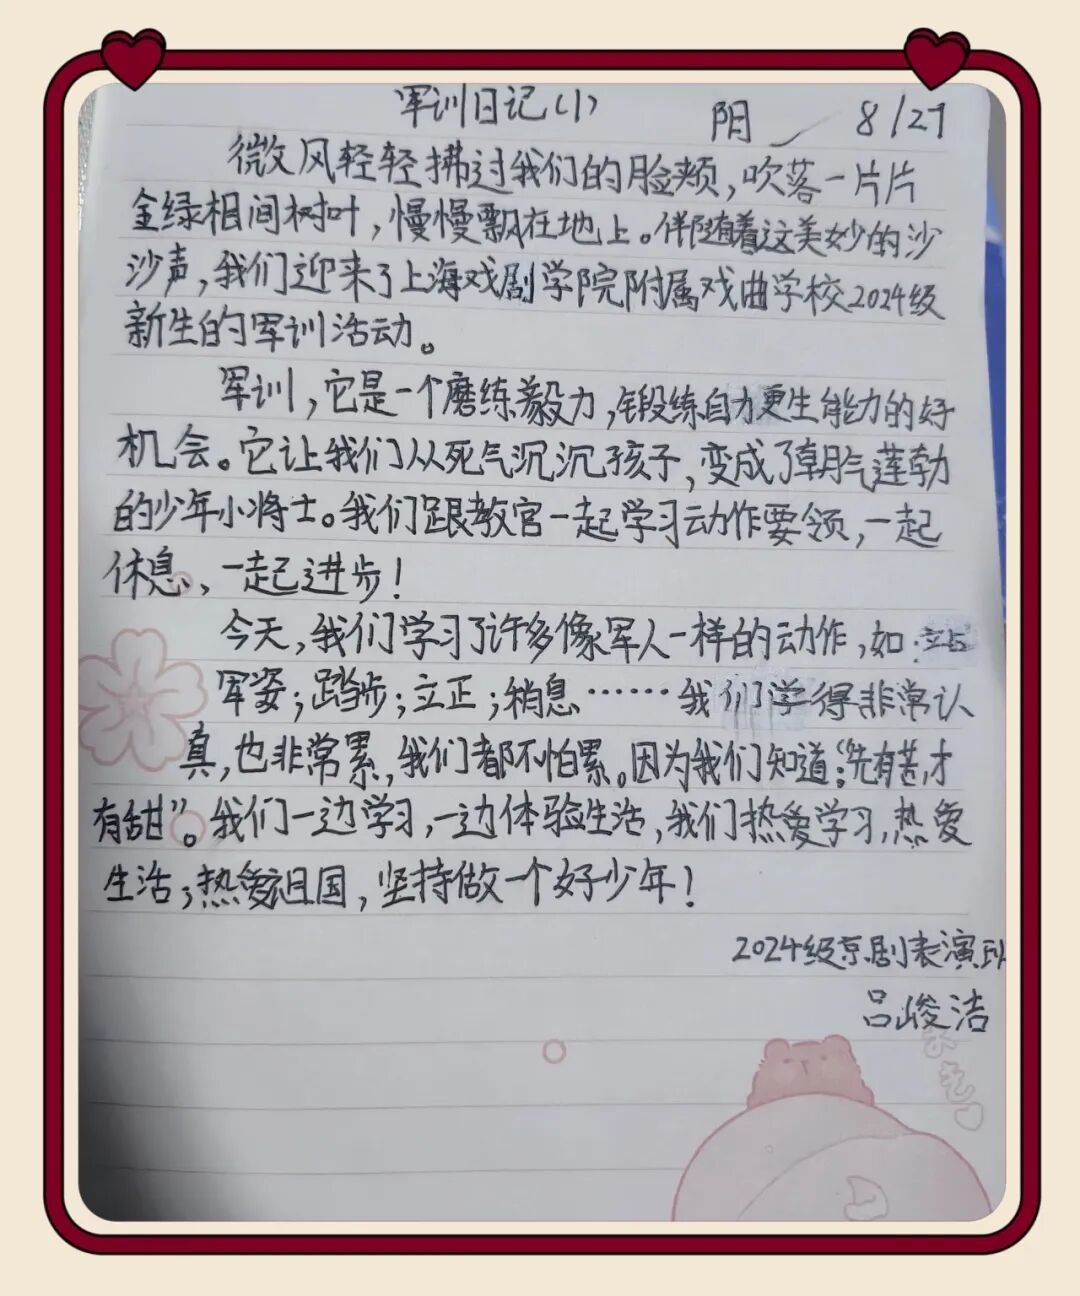 军训日记(1) 阳 8/27
微风轻轻拂过我们的脸颊,吹落一片片
金绿相间树叶,慢慢飘在地上。伴随着这美妙的沙
沙声,我们迎来了上海戏剧学院附属戏曲学校2024级
新生的军训活动。
军训,它是一个磨练毅力,锻练自力更生能力的好
机会。它让我们从死气沉沉孩子,变成了朝气蓬勃
的少年小将士。我们跟教官一起学习动作要领,一起
休息、一起进步!
今天,我们学习了许多像军人一样的动作,如:
军姿;踏步;立正;稍息……我们学得非常认
真,也非常累,我们都不怕累。因为我们知道:“先有苦,才
有甜”。我们一边学习,一边体验生活,我们热爱学习,热爱
生活;热爱祖国,坚持做一个好少年!
2024级京剧表演班
吕峻洁